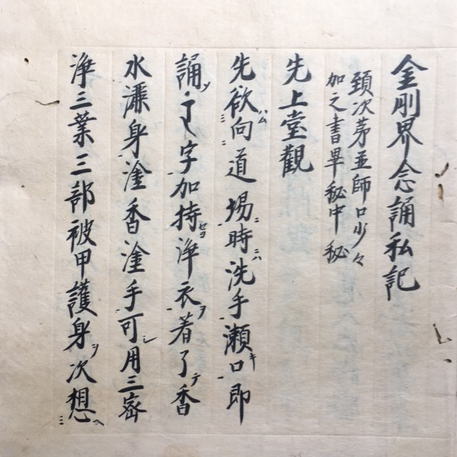 金剛界念誦私記
頚次苐並師口少々
加之書畢秘中秘
先上堂觀
先欲向道場時洗手瀨口即
誦字加持淨衣着了香
水灑身塗香塗手可用三密
淨三業三部被甲護身次想